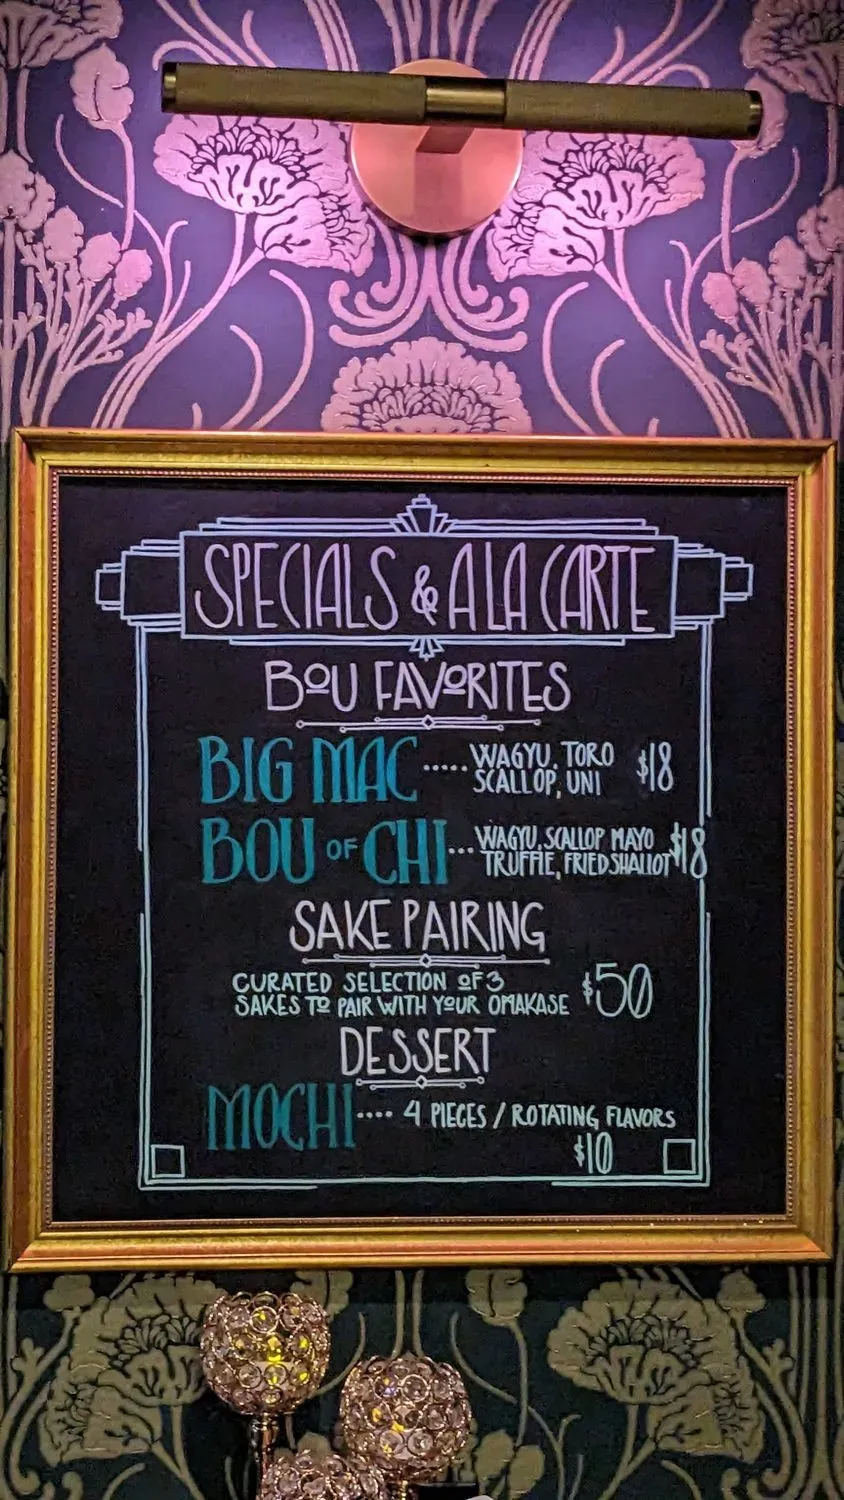 SPECIALS & A LA CARTE
BOU FAVORITES
BIG MAC ..... WAGYU, TORO $18
SCALLOP, UNI
BOU OF CHI ... WAGYU, SCALLOP MAYO $18
TRUFFLE, FRIED SHALLOT
SAKE PAIRING
CURATED SELECTION OF 3 $50
SAKES TO PAIR WITH YOUR OMAKASE
DESSERT
MOCHI .... 4 PIECES / ROTATING FLAVORS
$10